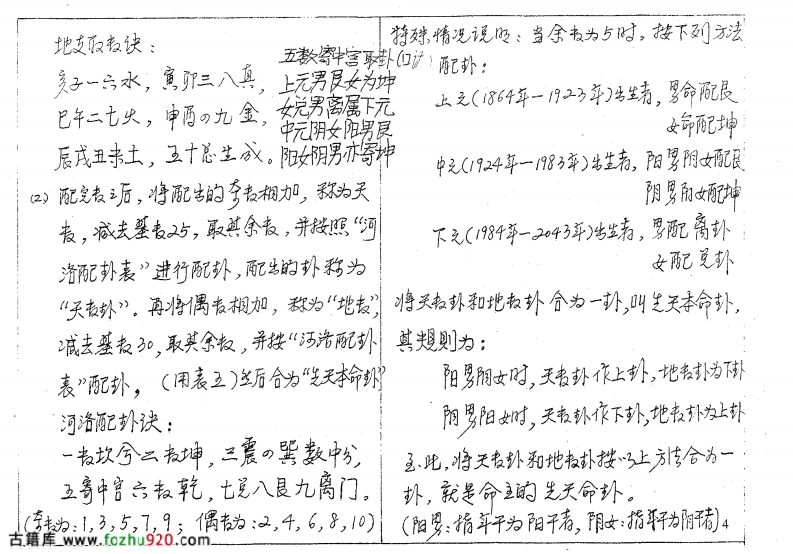 地支取数诀：
亥子一六水，寅卯三八真，
巳午二七火，申酉の九金，
辰戌丑未土，五十总生成。
五数寄中宫取卦
上元男艮女为坤
女兑男离属下元
中元阴女阳男艮
阳女阴男亦寄坤
(2) 配完数之后，将配出的奇数相加，称为天
数，减去基数25，取其余数，并按照“河
洛配卦表”进行配卦，配出的卦称为
“天数卦”。再将偶数相加，称为“地数”，
减去基数30，取其余数，并按“河洛配卦
表”配卦，（用表五）然后合为“先天本命卦”
河洛配卦诀：
一数坎兮二数坤，三震の巽数中分，
五寄中宫六数乾，七兑八艮九离门。
(奇数为：1,3,5,7,9；偶数为：2,4,6,8,10)
特殊情况说明：当余数为5时，按下列方法
配卦：
上元(1864年—1923年)出生者，男命配艮
女命配坤
中元(1924年—1983年)出生者，阳男阴女配艮
阴男阳女配坤
下元(1984年—2043年)出生者，男配离卦
女配兑卦
将天数卦和地数卦合为一卦，叫先天本命卦，
其规则为：
阳男阴女时，天数卦作上卦，地数卦为下卦
阴男阳女时，天数卦作下卦，地数卦为上卦
至此，将天数卦和地数卦按以上方法合为一
卦，就是命主的先天命卦。
(阳男：指年干为阳干者，阴女：指年干为阴干者) 4
古籍库 www.fozhu920.com